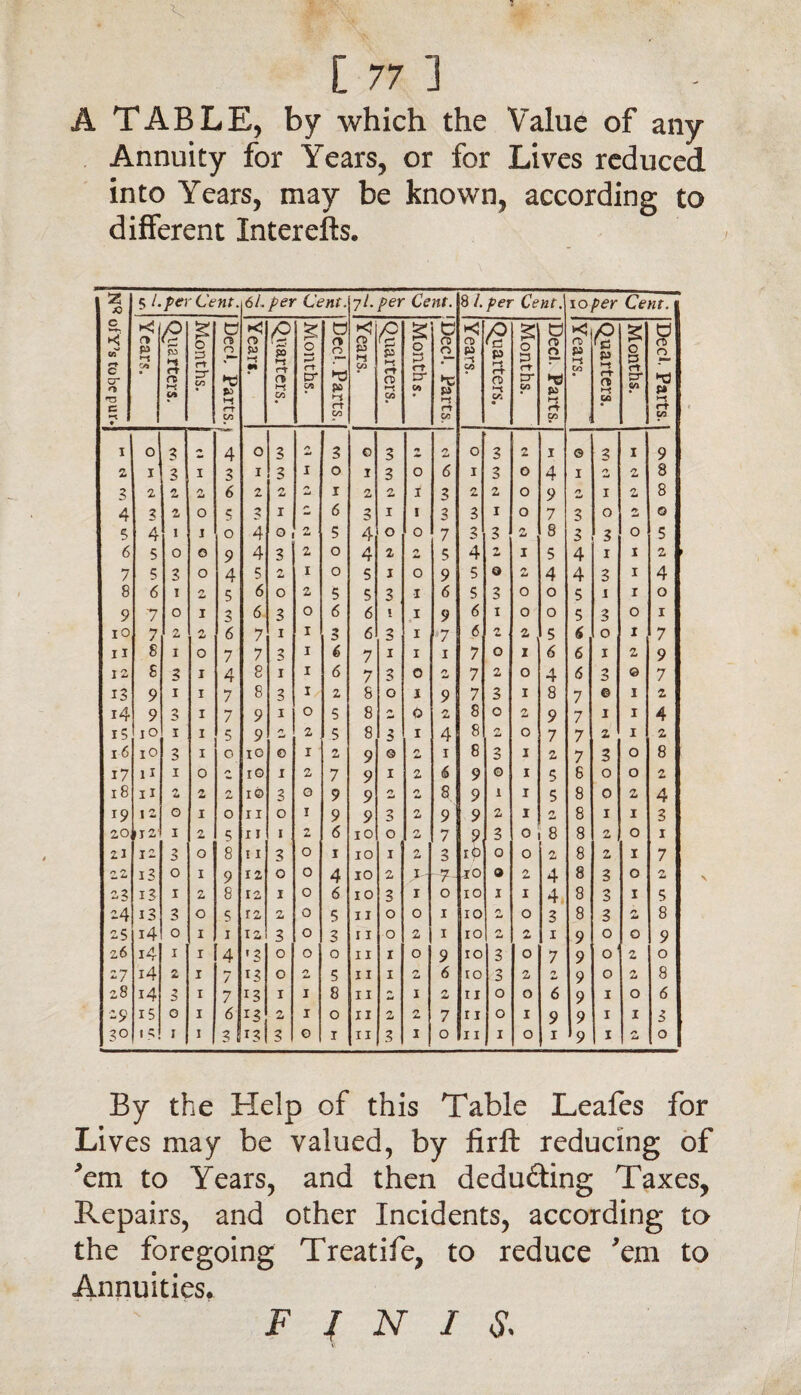 [ 77 ]
A TABLE, by which the Value of any
Annuity for Years, or for Lives reduced
into Years, may be known, according to
different Interests.
Nº of Y's to be pur. | 5 l. per Cent. | 6 l. per Cent. | 7 l. per Cent. | 8 l. per Cent. | 10 per Cent.
Years. Quarters. Months. Decl. Parts. | Years. Quarters. Months. Decl. Parts. | Years. Quarters. Months. Decl. Parts. | Years. Quarters. Months. Decl. Parts. | Years. Quarters. Months. Decl. Parts.
1 | 0 3 2 4 | 0 3 2 3 | 0 3 2 2 | 0 3 2 1 | 0 3 1 9
2 | 1 3 1 3 | 1 3 1 0 | 1 3 0 6 | 1 3 0 4 | 1 2 2 8
3 | 2 2 2 6 | 2 2 2 1 | 2 2 1 3 | 2 2 0 9 | 2 1 2 8
4 | 3 2 0 5 | 3 1 2 6 | 3 1 1 3 | 3 1 0 7 | 3 0 2 0
5 | 4 1 1 0 | 4 0 2 5 | 4 0 0 7 | 3 3 2 8 | 3 3 0 5
6 | 5 0 0 9 | 4 3 2 0 | 4 2 2 5 | 4 2 1 5 | 4 1 1 2
7 | 5 3 0 4 | 5 2 1 0 | 5 1 0 9 | 5 0 2 4 | 4 3 1 4
8 | 6 1 2 5 | 6 0 2 5 | 5 3 1 6 | 5 3 0 0 | 5 1 1 0
9 | 7 0 1 3 | 6 3 0 6 | 6 1 1 9 | 6 1 0 0 | 5 3 0 1
10 | 7 2 2 6 | 7 1 1 3 | 6 3 1 7 | 6 2 2 5 | 6 0 1 7
11 | 8 1 0 7 | 7 3 1 6 | 7 1 1 1 | 7 0 1 6 | 6 1 2 9
12 | 8 3 1 4 | 8 1 1 6 | 7 3 0 2 | 7 2 0 4 | 6 3 0 7
13 | 9 1 1 7 | 8 3 1 2 | 8 0 1 9 | 7 3 1 8 | 7 0 1 2
14 | 9 3 1 7 | 9 1 0 5 | 8 2 0 2 | 8 0 2 9 | 7 1 1 4
15 | 10 1 1 5 | 9 2 2 5 | 8 3 1 4 | 8 2 0 7 | 7 2 1 2
16 | 10 3 1 0 | 10 0 1 2 | 9 0 2 1 | 8 3 1 2 | 7 3 0 8
17 | 11 1 0 2 | 10 1 2 7 | 9 1 2 6 | 9 0 1 5 | 8 0 0 2
18 | 11 2 2 2 | 10 3 0 9 | 9 2 2 8 | 9 1 1 5 | 8 0 2 4
19 | 12 0 1 0 | 11 0 1 9 | 9 3 2 9 | 9 2 1 2 | 8 1 1 3
20 | 12 1 2 5 | 11 1 2 6 | 10 0 2 7 | 9 3 0 8 | 8 2 0 1
21 | 12 3 0 8 | 11 3 0 1 | 10 1 2 3 | 10 0 0 2 | 8 2 1 7
22 | 13 0 1 9 | 12 0 0 4 | 10 2 1 7 | 10 0 2 4 | 8 3 0 2
23 | 13 1 2 8 | 12 1 0 6 | 10 3 1 0 | 10 1 1 4 | 8 3 1 5
24 | 13 3 0 5 | 12 2 0 5 | 11 0 0 1 | 10 2 0 3 | 8 3 2 8
25 | 14 0 1 1 | 12 3 0 3 | 11 0 2 1 | 10 2 2 1 | 9 0 0 9
26 | 14 1 1 4 | 13 0 0 0 | 11 1 0 9 | 10 3 0 7 | 9 0 2 0
27 | 14 2 1 7 | 13 0 2 5 | 11 1 2 6 | 10 3 2 2 | 9 0 2 8
28 | 14 3 1 7 | 13 1 1 8 | 11 2 1 2 | 11 0 0 6 | 9 1 0 6
29 | 15 0 1 6 | 13 2 1 0 | 11 2 2 7 | 11 0 1 9 | 9 1 1 3
30 | 15 1 1 3 | 13 3 0 1 | 11 3 1 0 | 11 1 0 1 | 9 1 2 0
By the Help of this Table Leases for
Lives may be valued, by first reducing of
'em to Years, and then deducting Taxes,
Repairs, and other Incidents, according to
the foregoing Treatise, to reduce 'em to
Annuities.
FINIS.